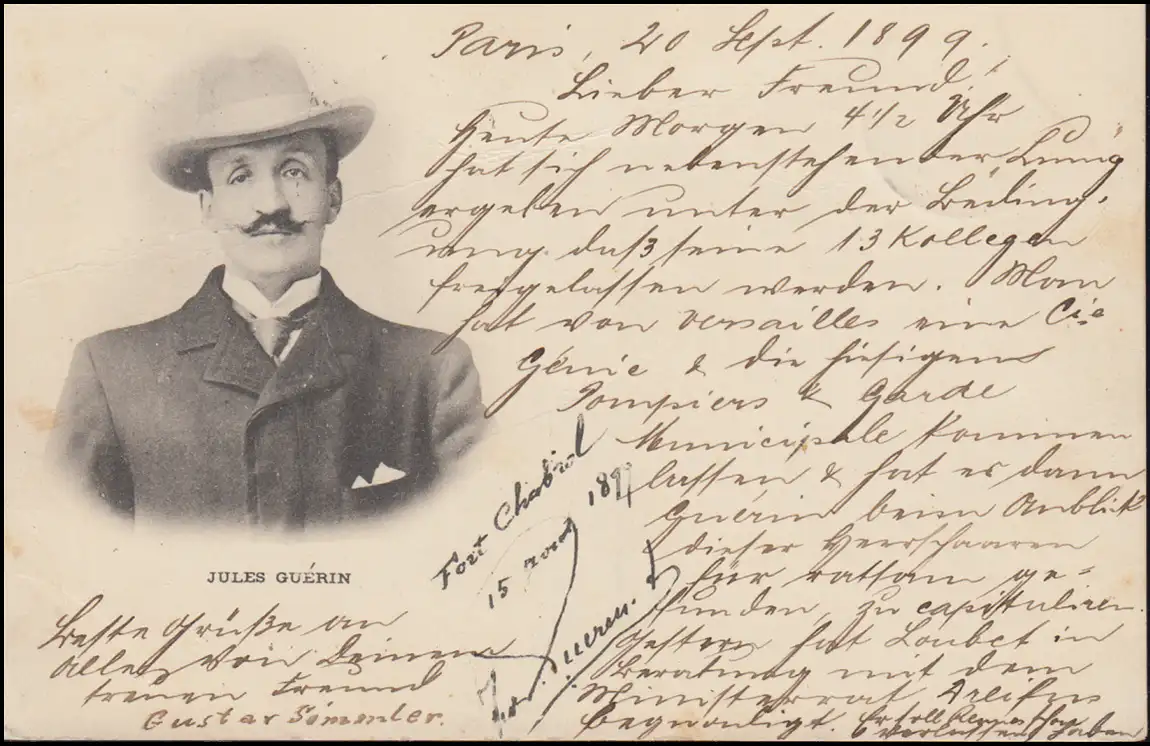 Paris, 20 Sept. 1899.
Lieber Freund!
Heute Morgen 4½ Uhr
hat sich nebenstehender
ergeben unter der Beding-
ung daß seine 13 Kollegen
freigelassen werden. Man
hat von Versailles eine Cie
Génie & die hiesigen
Pompiers & Garde
Municipale kommen
lassen & hat es dann
Guérin beim Anblick
dieser Heerschaaren
für ratsam ge=
funden, zu capituliren.
Gestern hat Loubet in
Beratung mit dem
Ministerrat Dreifus
begnadigt. Er soll Rennes schon
verlassen haben
Fort Chabrol
15 août 1899
Jules Guérin
JULES GUÉRIN
Beste Grüße an
Alle von Deinem
treuen Freund
Gustav Simmler.